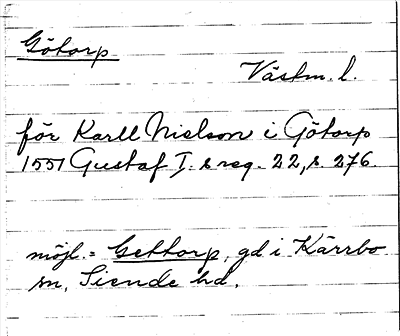 Götorp
Västm. l.
för Karll Nielson i Götorp
1551 Gustaf I. s reg. 22, s. 276.
möjl. = Gettorp, gd i Kärrbo
sn, Siende hd.